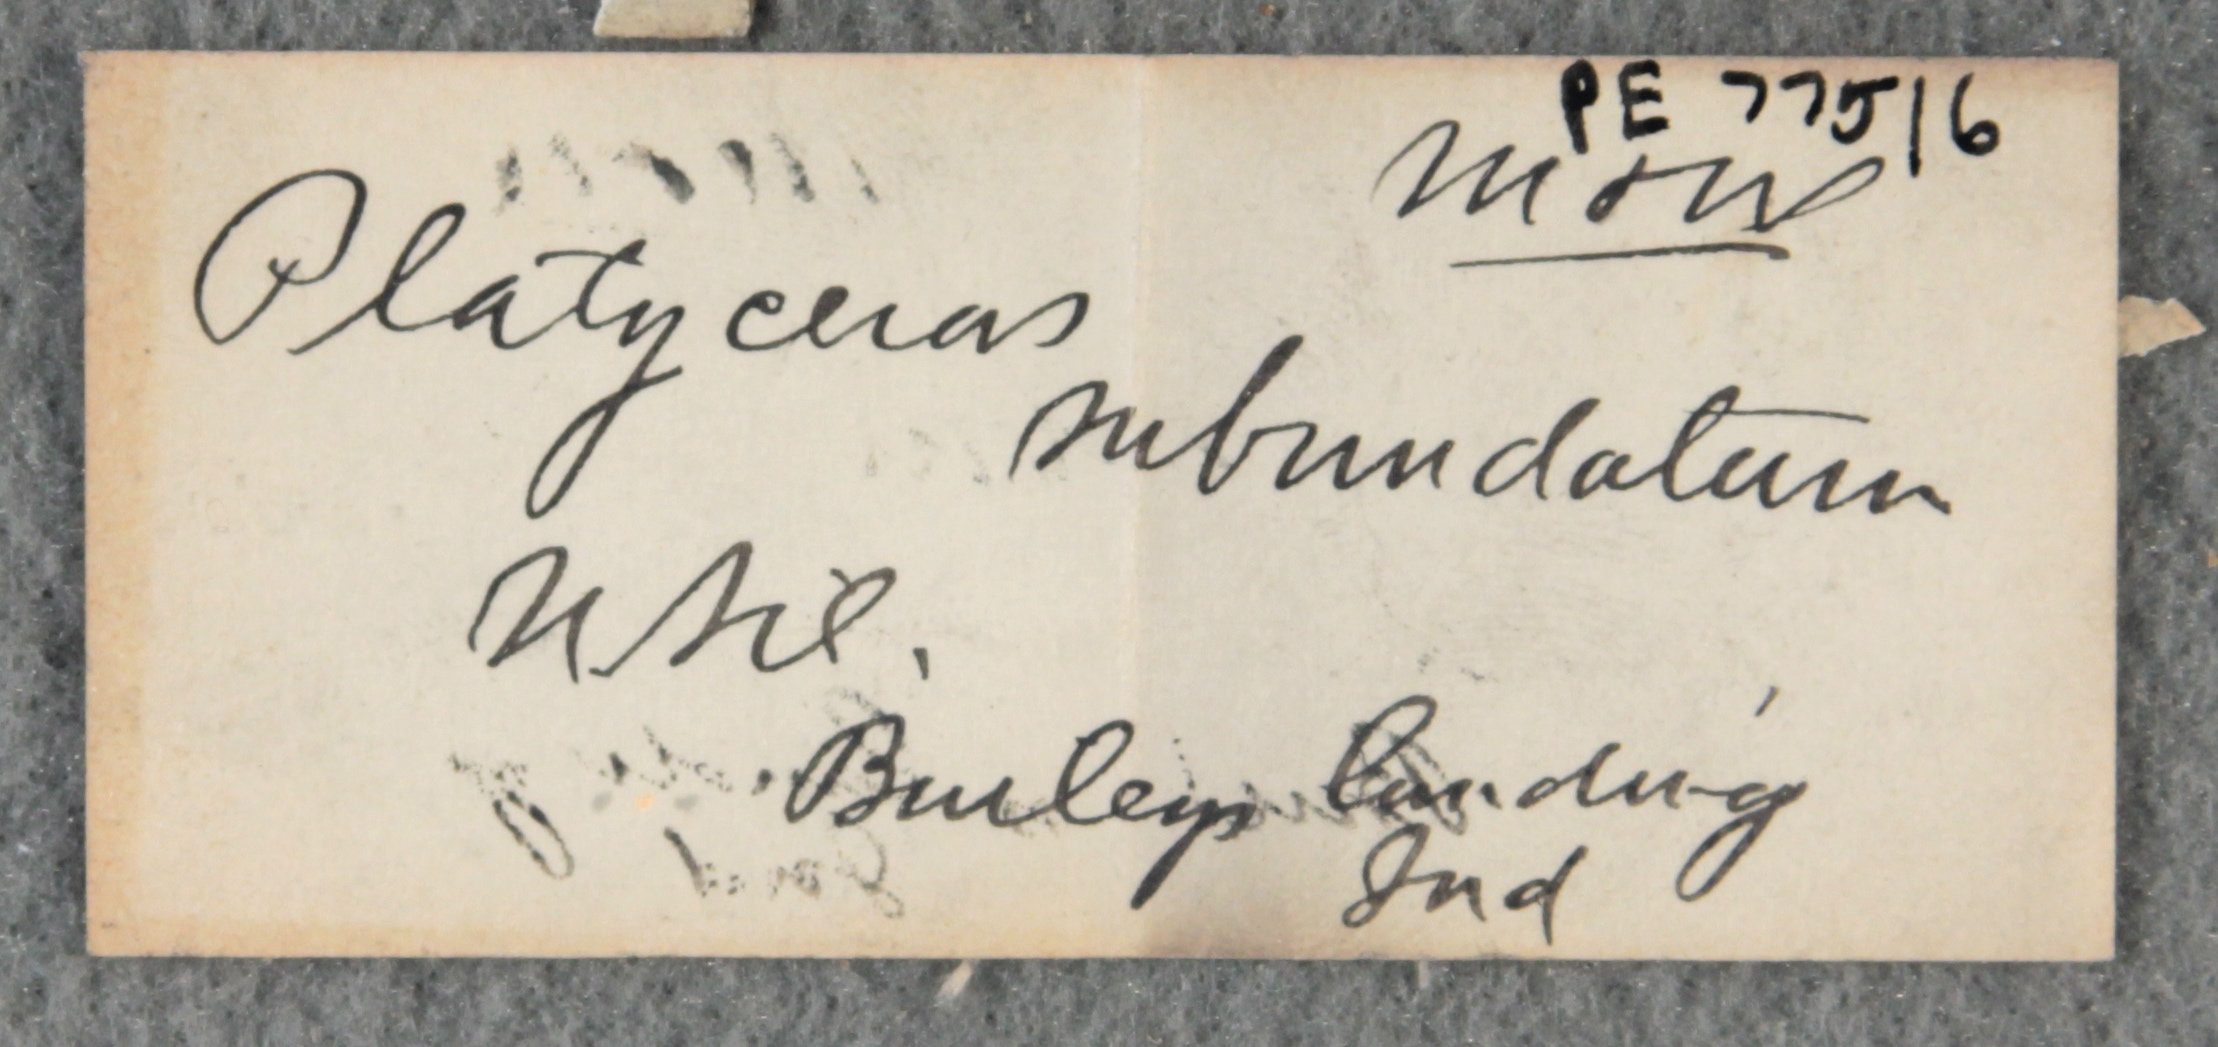 PE 77516
Platyceras
subundatum
U Sil.
Burleys landing
Ind